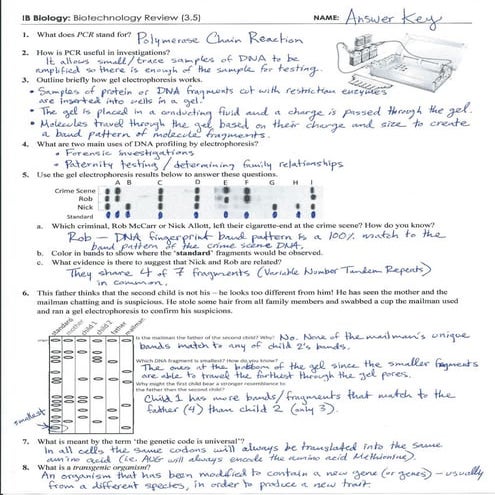 IB Biology: Biotechnology Review (3.5) NAME: Answer Key
1. What does PCR stand for? Polymerase Chain Reaction
2. How is PCR useful in investigations?
It allows small/trace samples of DNA to be
amplified so there is enough of the sample for testing.
3. Outline briefly how gel electrophoresis works.
• Samples of protein or DNA fragments cut with restriction enzymes
are inserted into wells in a gel.
• The gel is placed in a conducting fluid and a charge is passed through the gel.
• Molecules travel through the gel based on their charge and size to create
a band pattern of molecule fragments.
4. What are two main uses of DNA profiling by electrophoresis?
• Forensic investigations
• Paternity testing / determining family relationships
5. Use the gel electrophoresis results below to answer these questions.
A B C D E F G H I
Crime Scene
Rob
Nick
Standard
a. Which criminal, Rob McCarr or Nick Allott, left their cigarette-end at the crime scene? How do you know?
Rob — DNA fingerprint band pattern is a 100% match to the
band pattern of the crime scene DNA.
b. Color in bands to show where the 'standard' fragments would be observed.
c. What evidence is there to suggest that Nick and Rob are related?
They share 4 of 7 fragments (Variable Number Tandem Repeats)
in common.
6. This father thinks that the second child is not his – he looks too different from him! He has seen the mother and the
mailman chatting and is suspicious. He stole some hair from all family members and swabbed a cup the mailman used
and ran a gel electrophoresis to confirm his suspicions.
standards mother child 1 child 2 father mailman
Is the mailman the father of the second child? Why? No. None of the mailman's unique
bands match to any of child 2's bands.
Which DNA fragment is smallest? How do you know?
The ones at the bottom of the gel since the smaller fragments
are able to travel the furthest through the gel pores.
Why might the first child bear a stronger resemblance to
the father than the second child?
Child 1 has more bands/fragments that match to the
father (4) than child 2 (only 3).
smallest
7. What is meant by the term 'the genetic code is universal'?
In all cells the same codons will always be translated into the same
amino acid (i.e. AUG will always encode the amino acid Methionine).
8. What is a transgenic organism?
An organism that has been modified to contain a new gene (or genes) — usually
from a different species, in order to produce a new trait.